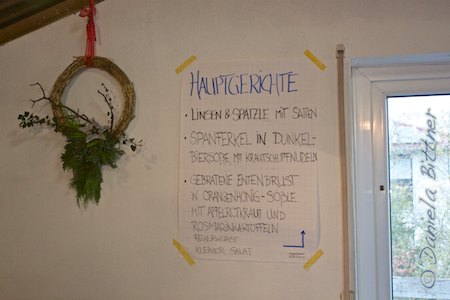 HAUPTGERICHTE
• LINSEN & SPÄTZLE MIT SAITEN
• SPANFERKEL IN DUNKEL-
BIERSOßE MIT KRAUTSCHUPFNUDELN
• GEBRATENE ENTENBRUST
IN ORANGENHONIG-SOßLE
MIT APFELROTKRAUT UND
ROSMARINKARTOFFELN
- FEUERWURST
- KLEINER SALAT
© Daniela Bittner